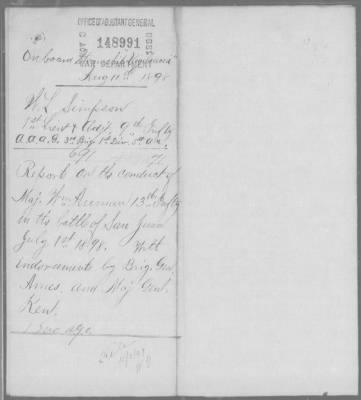 OFFICE OF ADJUTANT GENERAL
148991
WAR DEPARTMENT
On board
Aug 11th 1898
W. L. Simpson
1st Lieut & Adjt. 9th Infty
A.A.A.G. 3rd Brig. 1st Div. 5th A.C.
Report on the conduct of
Maj. Wm Auman 13th Infty
in the battle of San Juan
July 1st 1898. With
indorsements by Brig. Gen.
Ames, and Maj Genl.
Kent.